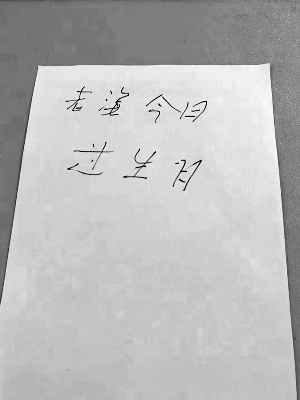 老婆今日
过生日